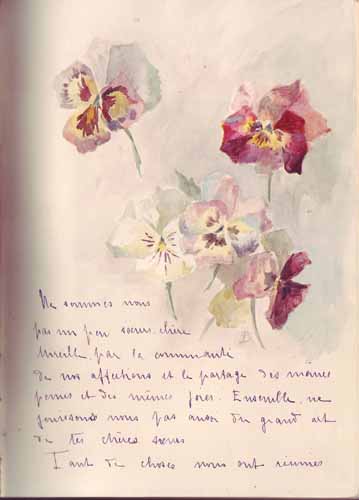 Ne sommes nous
pas un peu sœurs, chère
Mireille par la communauté
de nos affections et le partage des mêmes
peines et des mêmes joies. Ensemble, ne
jouissons nous pas aussi du grand art
de tes chères sœurs
Tant de choses nous ont réunies